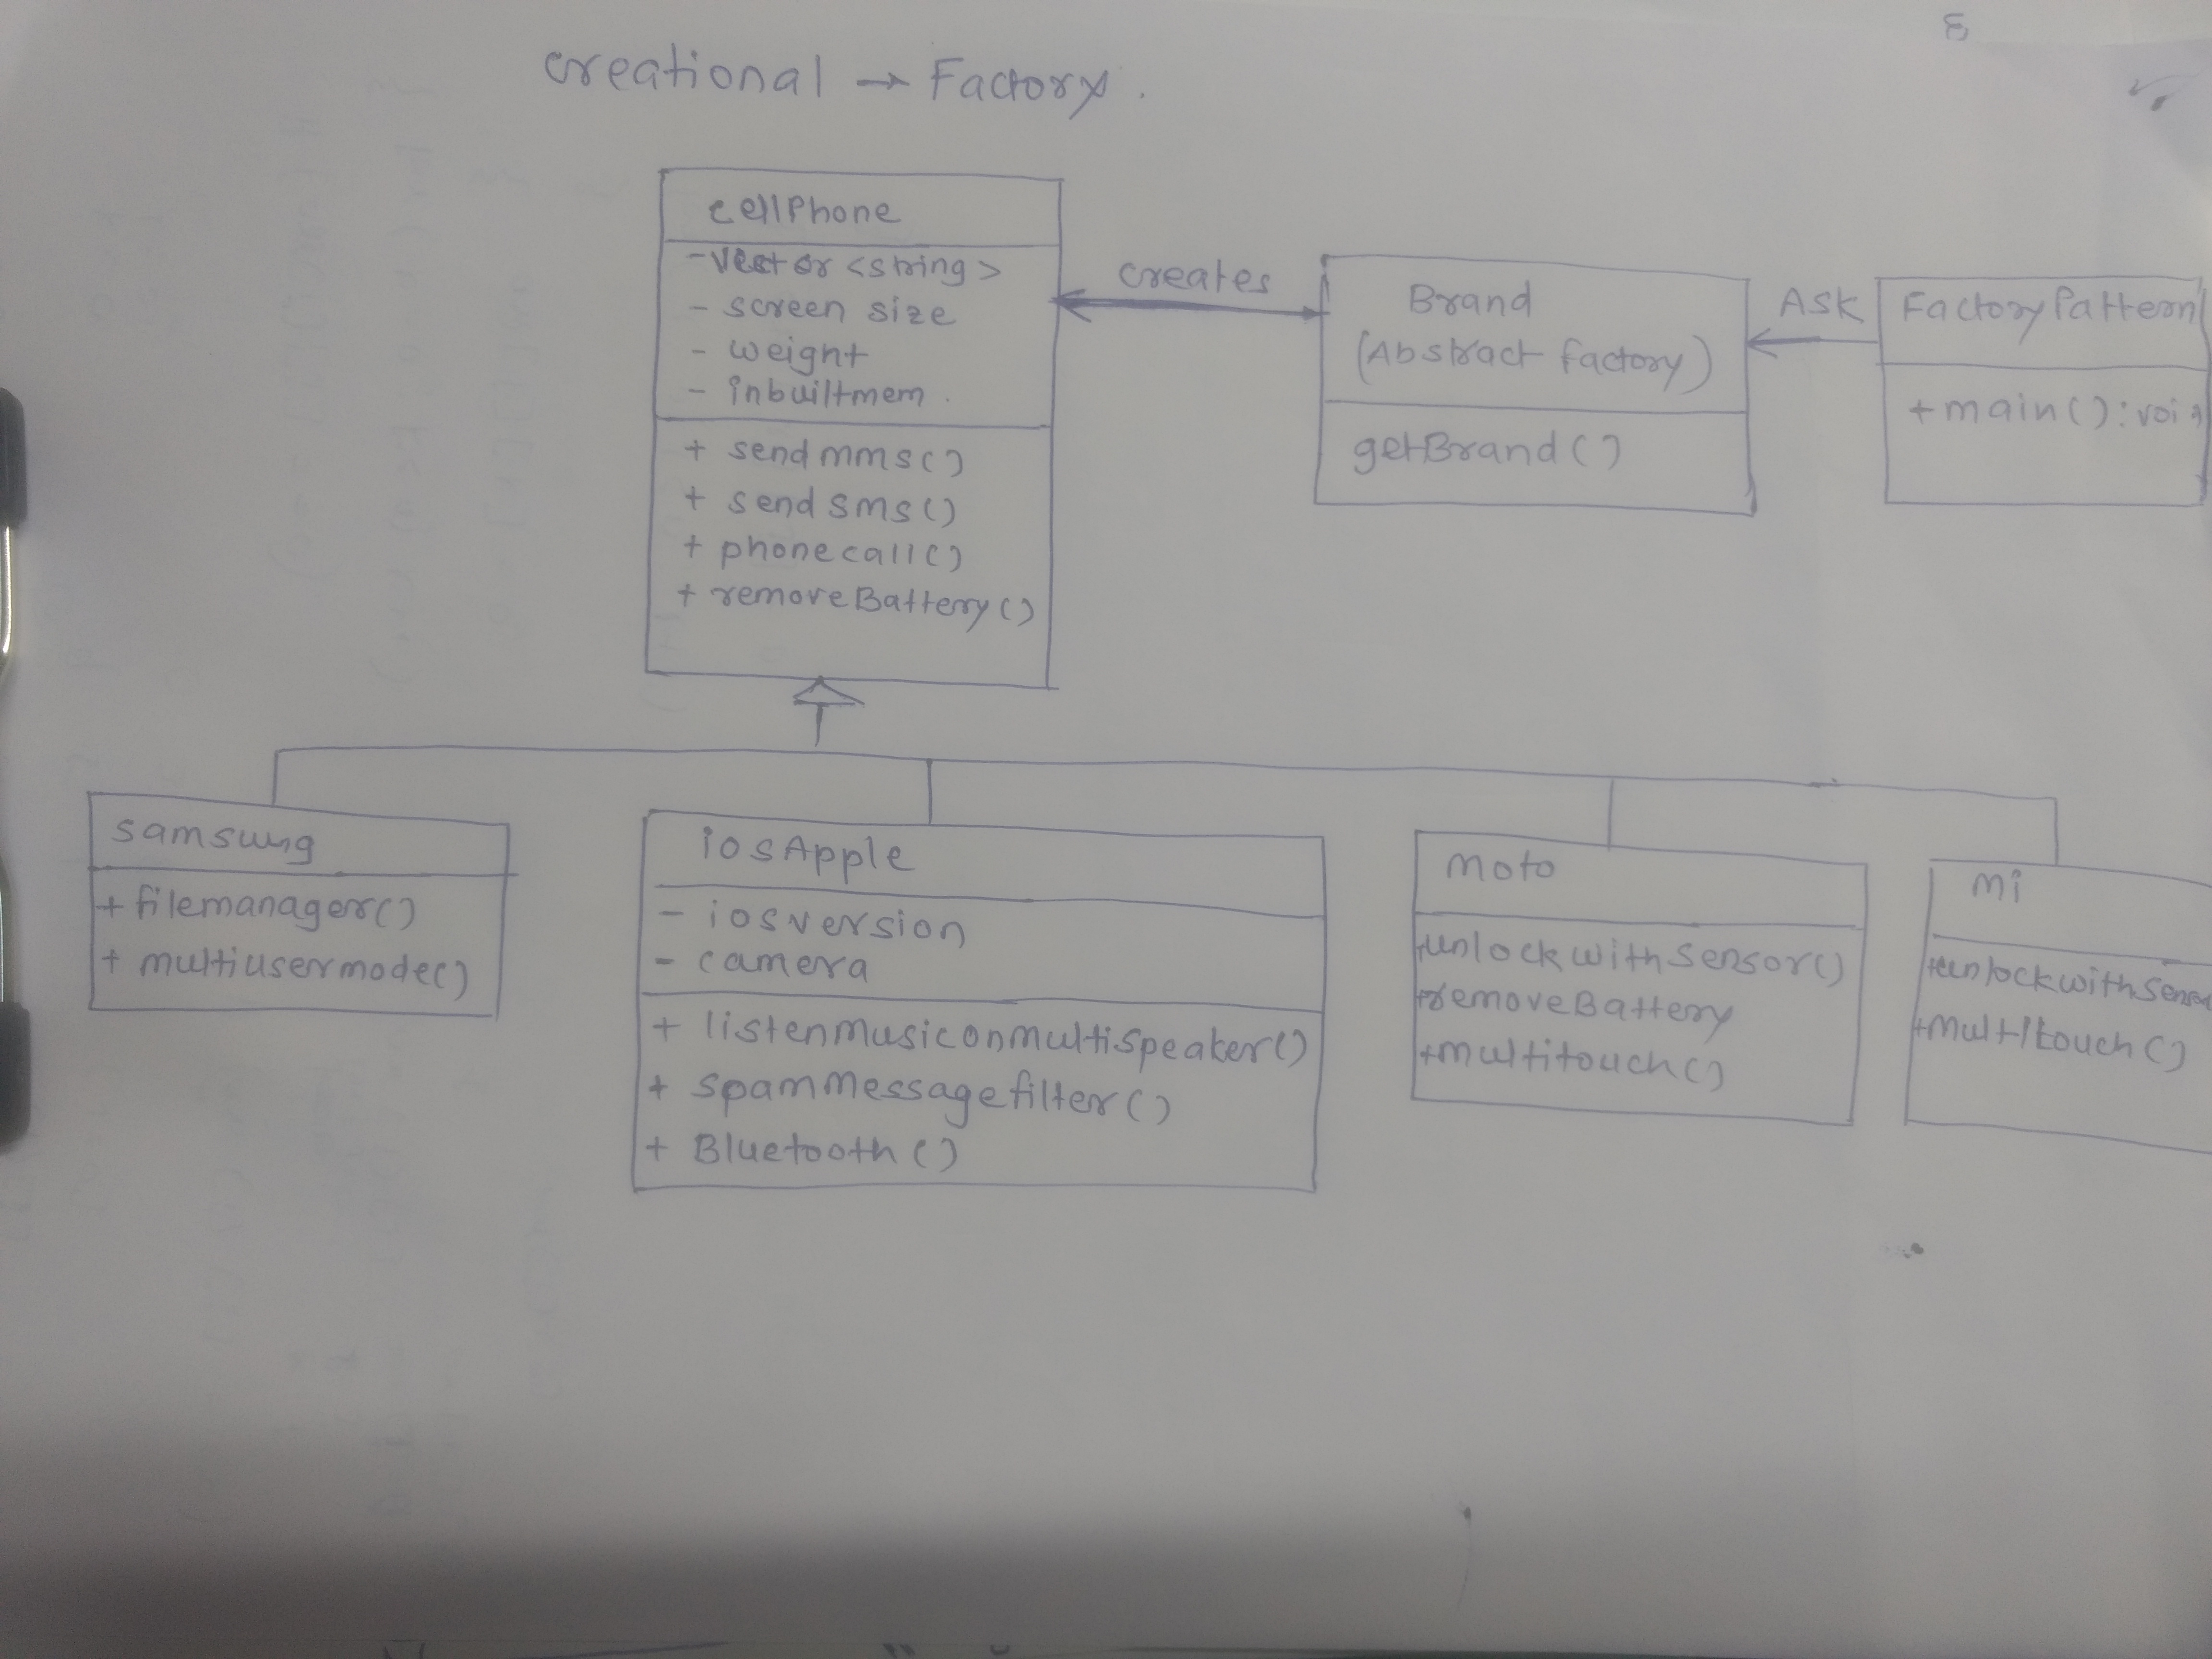 8
creational → Factory.
cellPhone
- vector <string>
- screen size
- weight
- inbuiltmem.
+ sendmms()
+ sendsms()
+ phonecall()
+ removeBattery()
creates
Brand
(Abstract factory)
getBrand()
Ask
FactoryPattern
+ main() : voi
samsung
+ filemanager()
+ multiusermode()
iosApple
- iosversion
- camera
+ listenmusiconmultispeaker()
+ spammessagefilter()
+ Bluetooth()
moto
+unlockwithsensor()
+removeBattery
+multitouch()
mi
+unlockwithsenso
+multitouch()